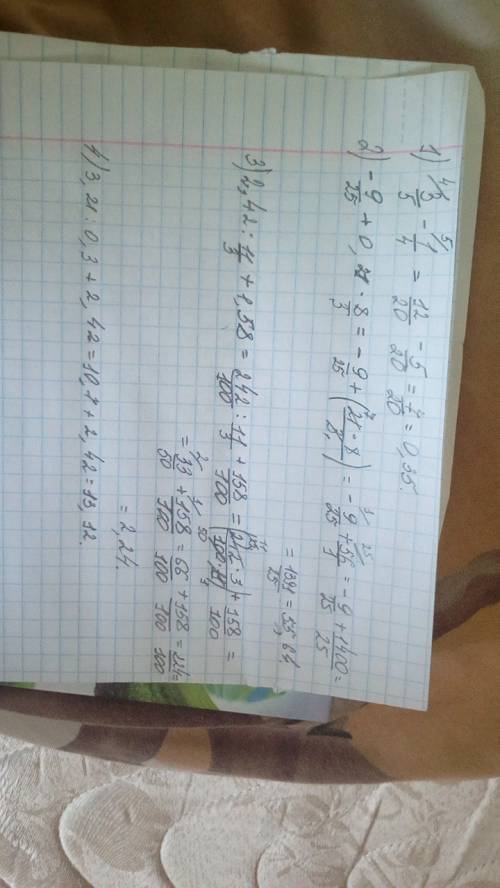 1) 4/ 3/5 - 5/ 1/4 = 12/20 - 5/20 = 7/20 = 0,35.
2) -9/25 + 0,21 · 8/3 = -9/25 + (21 · 8/3) = -1/ 9/25 + 25/ 56/1 = -9 + 1400/25 =
= 1391/25 = 55,64
3) 2,42 : 11/3 + 1,58 = 242/100 : 11/3 + 158/100 = (242 · 3/100 · 11) + 158/100 =
= 2/ 33/50 + 1/ 158/100 = 66/100 + 158/100 = 224/100 =
= 2,24.
4) 3,21 : 0,3 + 2,42 = 10,7 + 2,42 = 13,12.